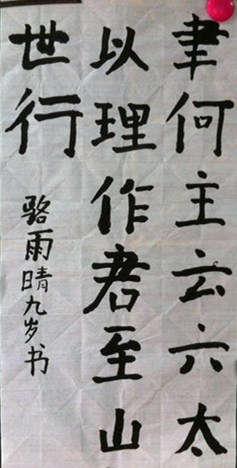 聿何主云六太
以理作君至山
世行
骆雨晴九岁书